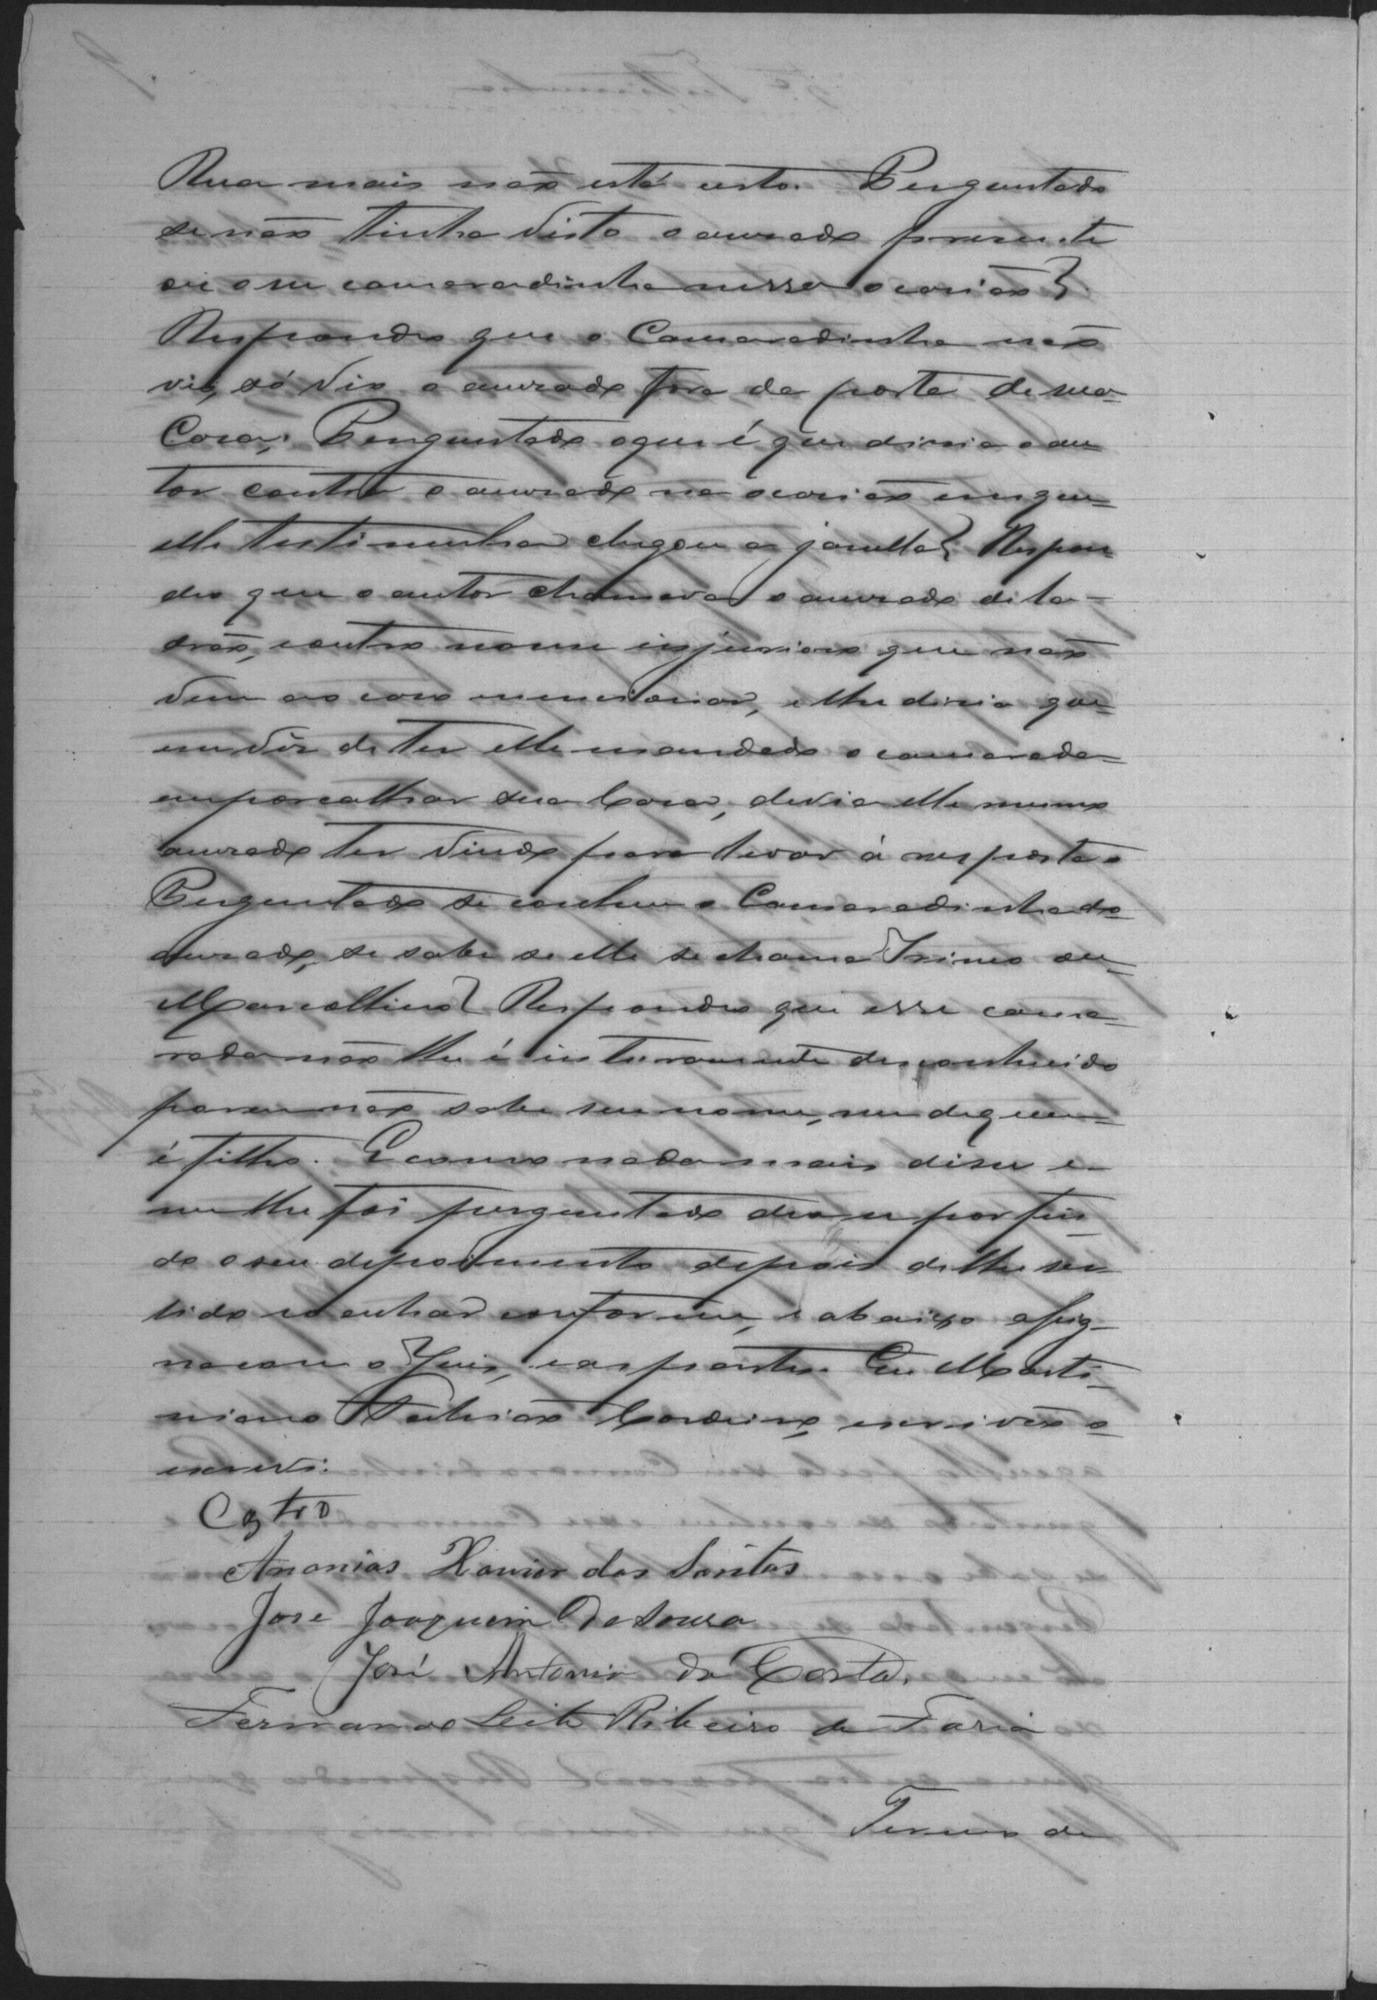 Rua mais não está certo. Perguntado
se não tinha visto o accusado presente
ou o seu camaradinha nessa occasião?
Respondeu que o Camaradinha não
vio, só vio o accusado fora da porta de sua
Casa. Perguntado o que é que dizia o au-
tor contra o accusado na occasião em que
elle testimunha chegou a janella? Respon-
deu que o autor chamava o accusado de la-
drão, e outro nome injurioso que não
vem ao caso mencionar, e lhe dizia que
em vêz de ter elle mandado o camarada
emporcalhar sua Casa, devia elle mesmo
accusado ter vindo para levar á resposta.
Perguntado se conhece o Camaradinha do
accusado, se sabe se elle se chama Irineo ou
Marcellino? Respondeu que esse cama-
rada não lhe é inteiramente desconhecido
porem não sabe seu nome, nem de quem
é filho. E como nada mais disse e
nem lhe foi perguntado deu-se por fin-
do o seu depoimento depois de lhe ser
lido e o achar conforme, e abaixo assig-
na com o Juis, e as partes. Eu Marti-
niano Cordeiro, escrivão o
escrevi.
Castro
Ananias Xavier dos Santos
José Joaquim de Souza
José Antonio da Costa.
Fernando Leite Ribeiro de Faria
Termo de